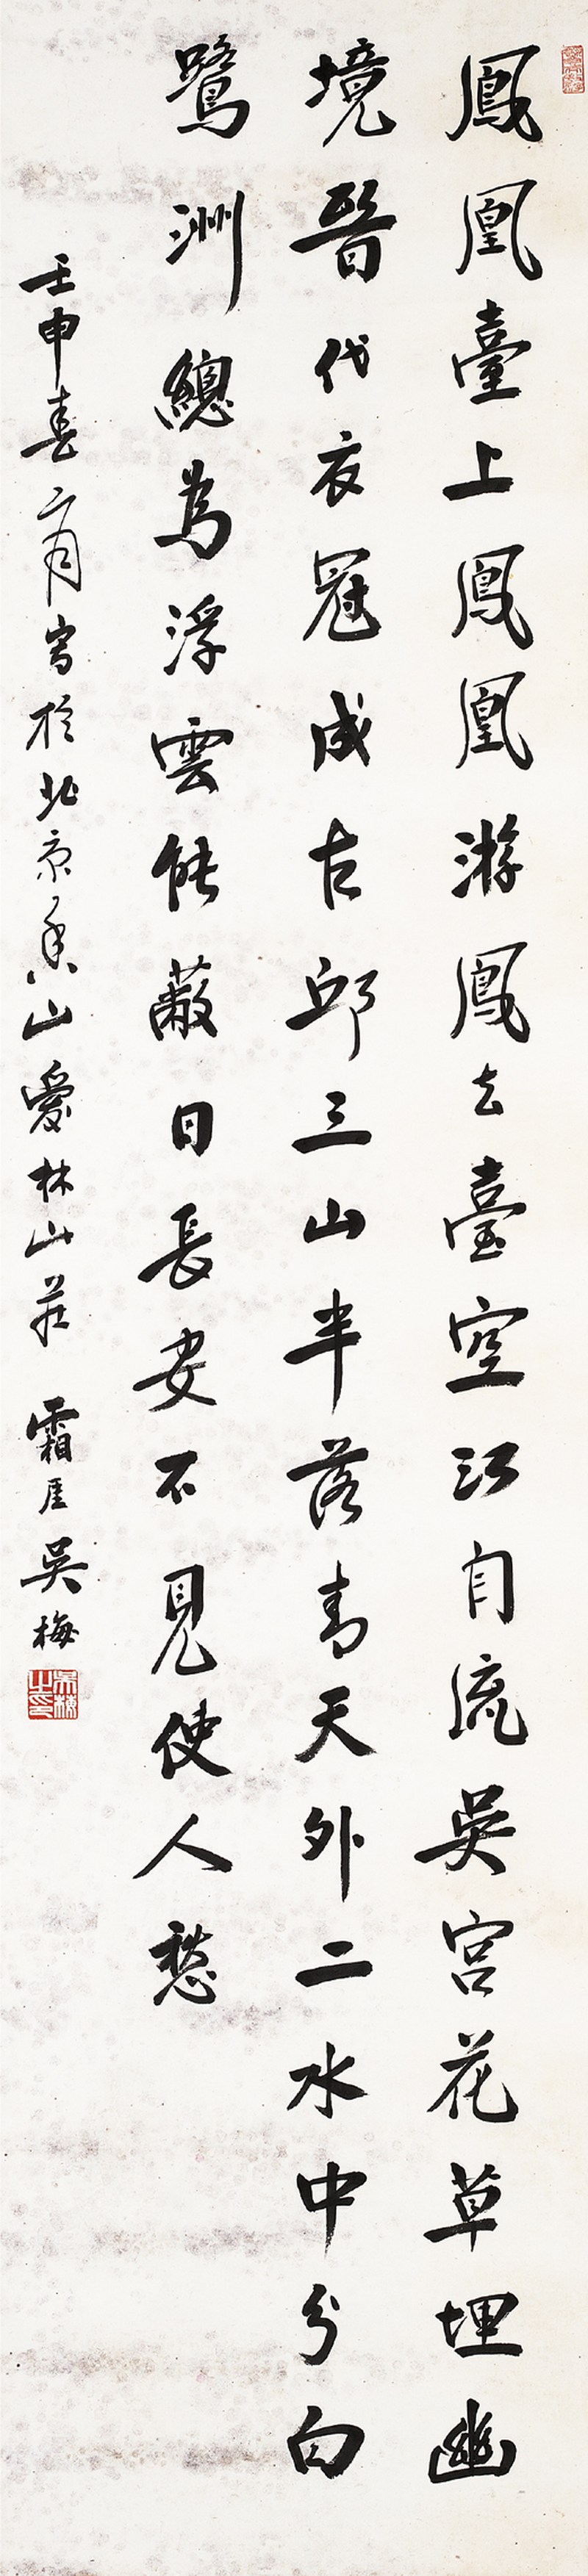 鳳凰臺上鳳凰游鳳去臺空江自流吳宮花草埋幽
境晉代衣冠成古邱三山半落青天外二水中分白
鷺洲總為浮雲能蔽日長安不見使人愁
壬申春二月寫於北京香山愛林山莊 霜厓吳梅